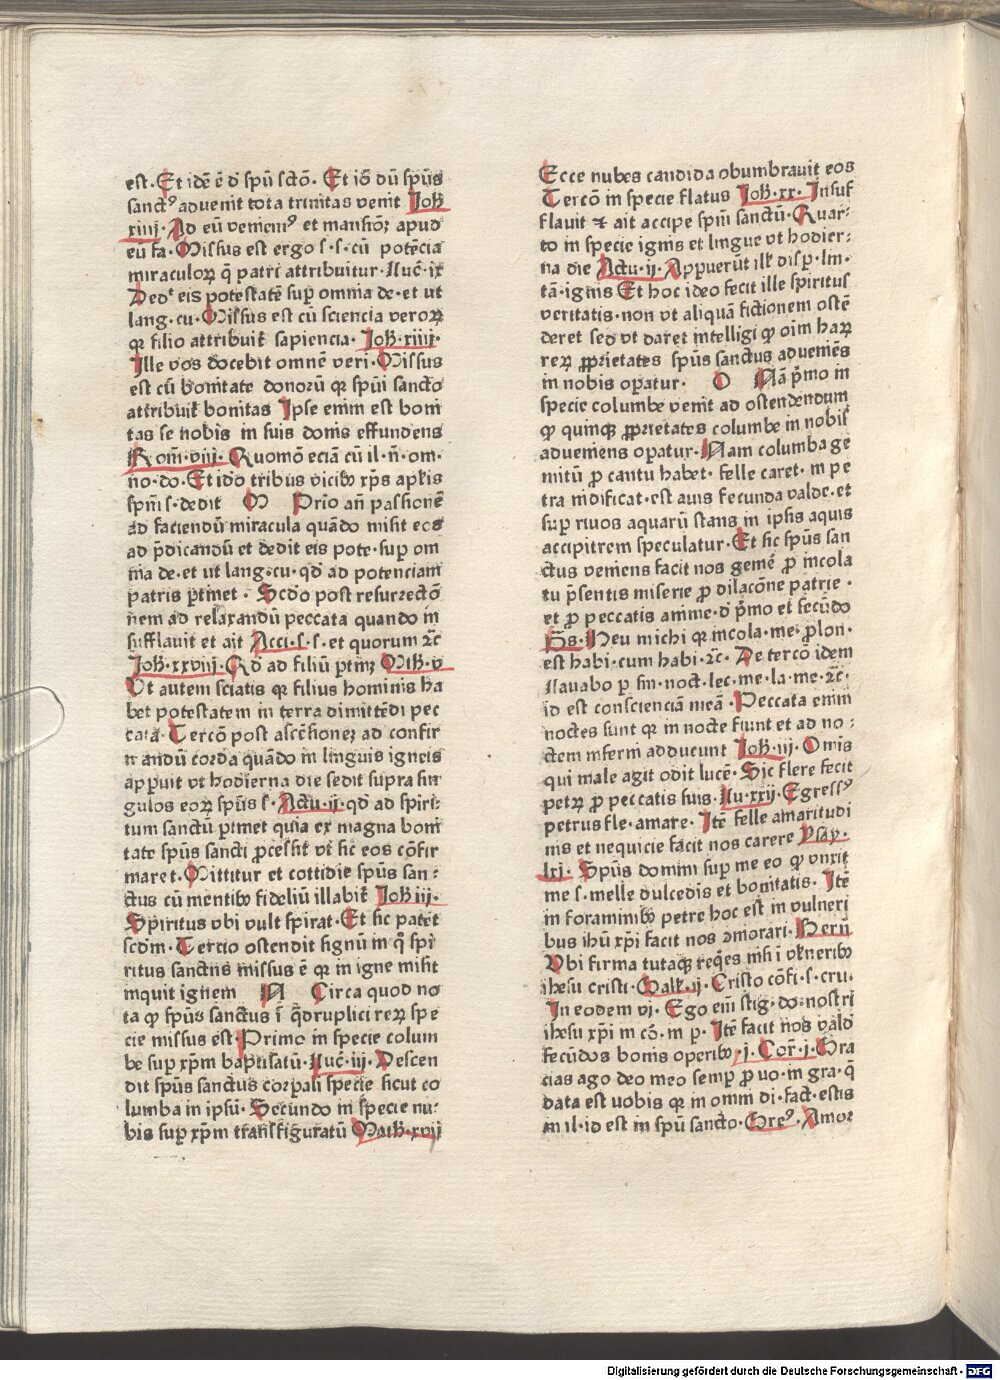 est. Et idē ē d̄ spū sctō. Et iō dū spūs
sanct⁹ advenit tota trinitas venit Joh̄
xiiij. Ad eū veniem⁹ et mansioꝫ apud
eū fa. Missus est ergo s. s. cū potēcia
miraculoꝝ q̄ patri attribuitur. Luc̄. ix
Ded᷑ eis potestatē suꝑ omnia de. et ut
lang. cu. Missus est cū sciencia veroꝝ
qꝛ filio attribuit᷑ sapiencia. Joh̄. xiiii.
Ille vos docebit omnē veri. Missus
est cū bonitate donorū qꝛ spūi sancto
attribuit᷑ bonitas Ipse enim est boni
tas se nobis in suis donis effundens
Rom̄. viii. Quomō eciā cū il. n̄. om.
no. do. Et idō tribus vicibꝫ xp̄s apl̄is
spm̄ s. dedit M Prīo añ passionē
ad faciendū miracula quādo misit eos
ad p̄dicandū et dedit eis pote. suꝑ om
nia de. et ut lang. cu. qd̄ ad potenciam
patris ꝑtinet. Scdo post resurrectō
nem ad relaxandū peccata quando in
sufflauit et ait Acci. s. s. et quorum ⁊c̄
Joh̄. xxviii. Qd̄ ad filiū ꝑtinꝫ Mth̄. v
Ut autem sciatis qꝛ filius hominis ha
bet potestatem in terra dimittēdi pec
cata. Tercō post ascēsioneꝫ ad confir
mandū corda quādo in linguis igneis
apꝑuit vt hodierna die sedit supra sin
gulos eoꝝ spūs s. Actu. ij. qd̄ ad spiri
tum sanctū ꝑtinet quia ex magna boni
tate spūs sancti ꝓcessit vt sic eos cōfir
maret. Mittitur et cottidie spūs san-
ctus cū mentibꝫ fideliū illabit᷑ Joh̄ iij.
Spiritus vbi vult spirat. Et sic patet
scdm. Tercio ostendit signū in q̊ spi
ritus sanctus missus ē qꝛ in igne misit
inquit ignem N Circa quod no
ta ꝙ spūs sanctus ī q̄druplici reꝝ spe
cie missus est. Primo in specie colum
be suꝑ xp̄m baptisatū. Luc̄. iij. Descen
dit spūs sanctus corꝑali specie sicut co
lumba in ipsū. Secundo in specie nu-
bis suꝑ xp̄m transfiguratū Math̄. xvij
Ecce nubes candida obumbravit eos
Tercō in specie flatus Joh̄. xx. Insuf
flavit ⁊ ait accipe spm̄ sanctū. Quar-
to in specie ignis et lingue vt hodier-
na die Actu. ij. Apꝑuerūt ill᷑ disꝑ. lin.
tā. ignis Et hoc ideo fecit ille spiritus
veritatis. non vt aliquā fictionem ostē
deret sed vt daret intelligi ꝙ oīm haꝝ
reꝝ ꝓprietates spūs sanctus adveniēs
in nobis oꝑatur. O Nā p̄mo in
specie columbe venit ad ostendendum
ꝙ quinqꝫ ꝓprietates columbe in nobis᷑
adveniens oꝑatur. Nam columba ge
mitū ꝓ cantu habet. felle caret. in pe
tra nidificat. est auis fecunda valde. et
suꝑ riuos aquarū stans in ipsis aquis
accipitrem speculatur. Et sic spūs san
ctus veniens facit nos gemē ꝓ incola
tu p̄sentis miserie ꝓ dilacōne patrie.
et ꝓ peccatis anime. d̄ p̄mo et secūdo
p̄s. Heu michi qꝛ incola. me. ꝓlon.
est habi. cum habi. ⁊c. De tercō idem
Lauabo ꝑ sin. noct. lec. me. la. me. ⁊c.
id est conscienciā meā. Peccata enim
noctes sunt qꝛ in nocte fiunt et ad no-
ctem inferni adducunt Joh̄. iij. Omīs
qui male agit odit lucē. Sic flere fecit
petꝝ ꝓ peccatis suis. Lu. xxij. Egress⁹
petrus fle. amare. Itē felle amaritudi
nis et nequicie facit nos carere Ysay.
lxi. Spūs domini suꝑ me eo ꝙ vnxit
me s. melle dulcedis et bonitatis. Itē
in foraminibꝫ petre hoc est in vulneri
bus ihū xp̄i facit nos ɔmorari. Bern̄
Vbi firma tutaqꝫ reqⁱes nisi ī vl̄neribꝫ
ihesu cristi. Gall᷑. ij. Cristo cōfi. s. cru.
In eodem vj. Ego eni stig. do. nostri
ihesu xp̄i in cō. m p. Itē facit nos vald̄
fecūdos bonis operibꝫ. j. Cor̄. j. Gra
cias ago deo meo semꝑ ꝓ uo. in gra. q̄
data est uobis qꝛ in omni di. fact. estis
in il. id est in spū sancto. Gre⁹. Amor
Digitalisierung gefördert durch die Deutsche Forschungsgemeinschaft - DFG